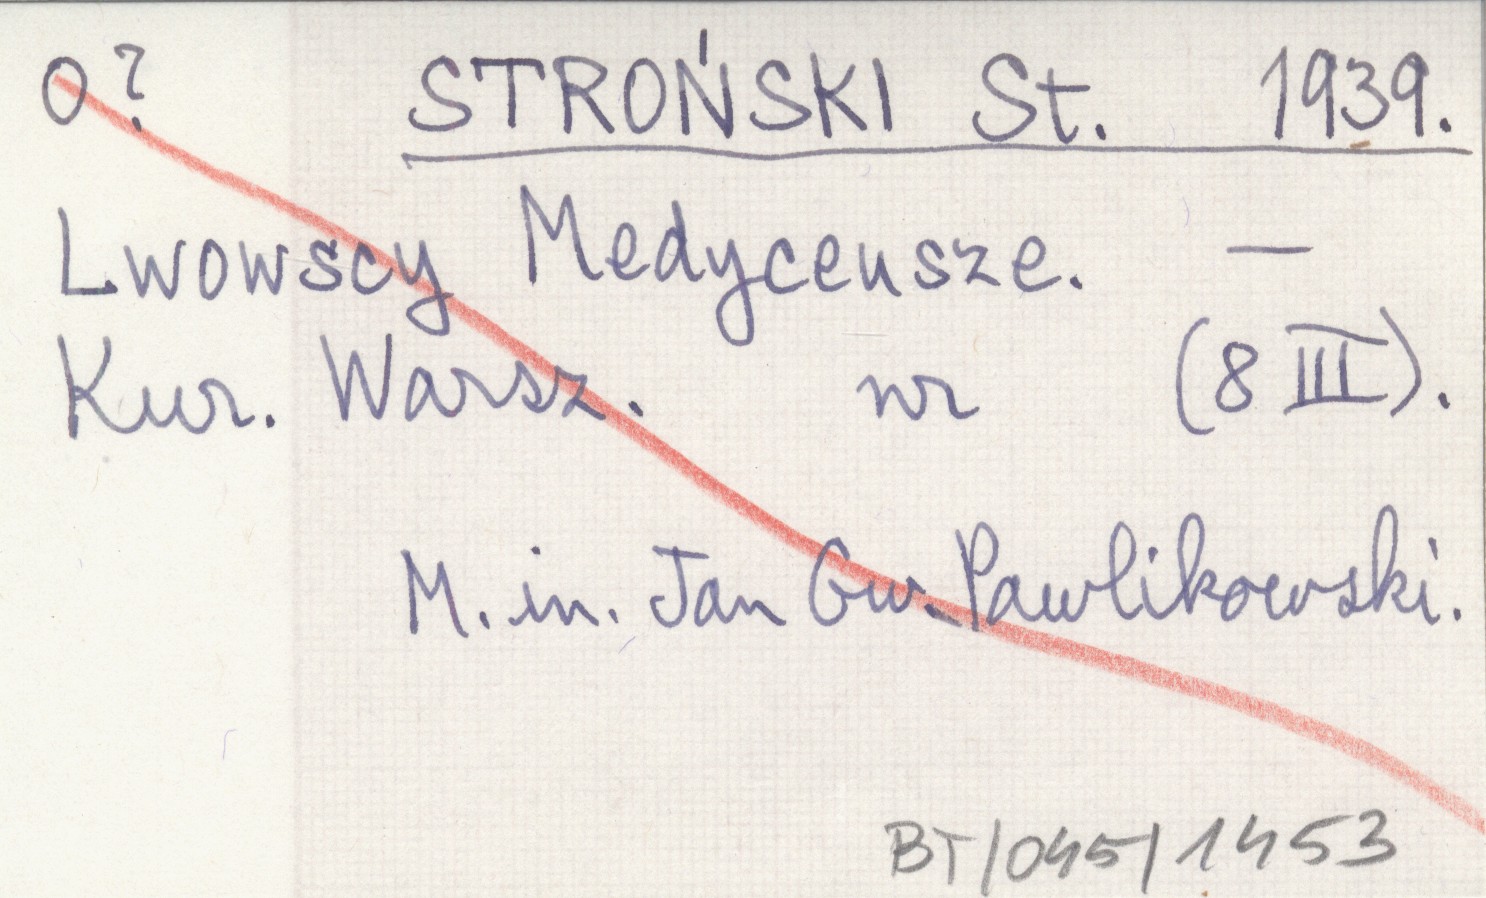 O? STROŃSKI St. 1939.
Lwowscy Medyceusze. —
Kur. Warsz. nr (8 III).
M. in. Jan Gw. Pawlikowski.
BT/045/1453